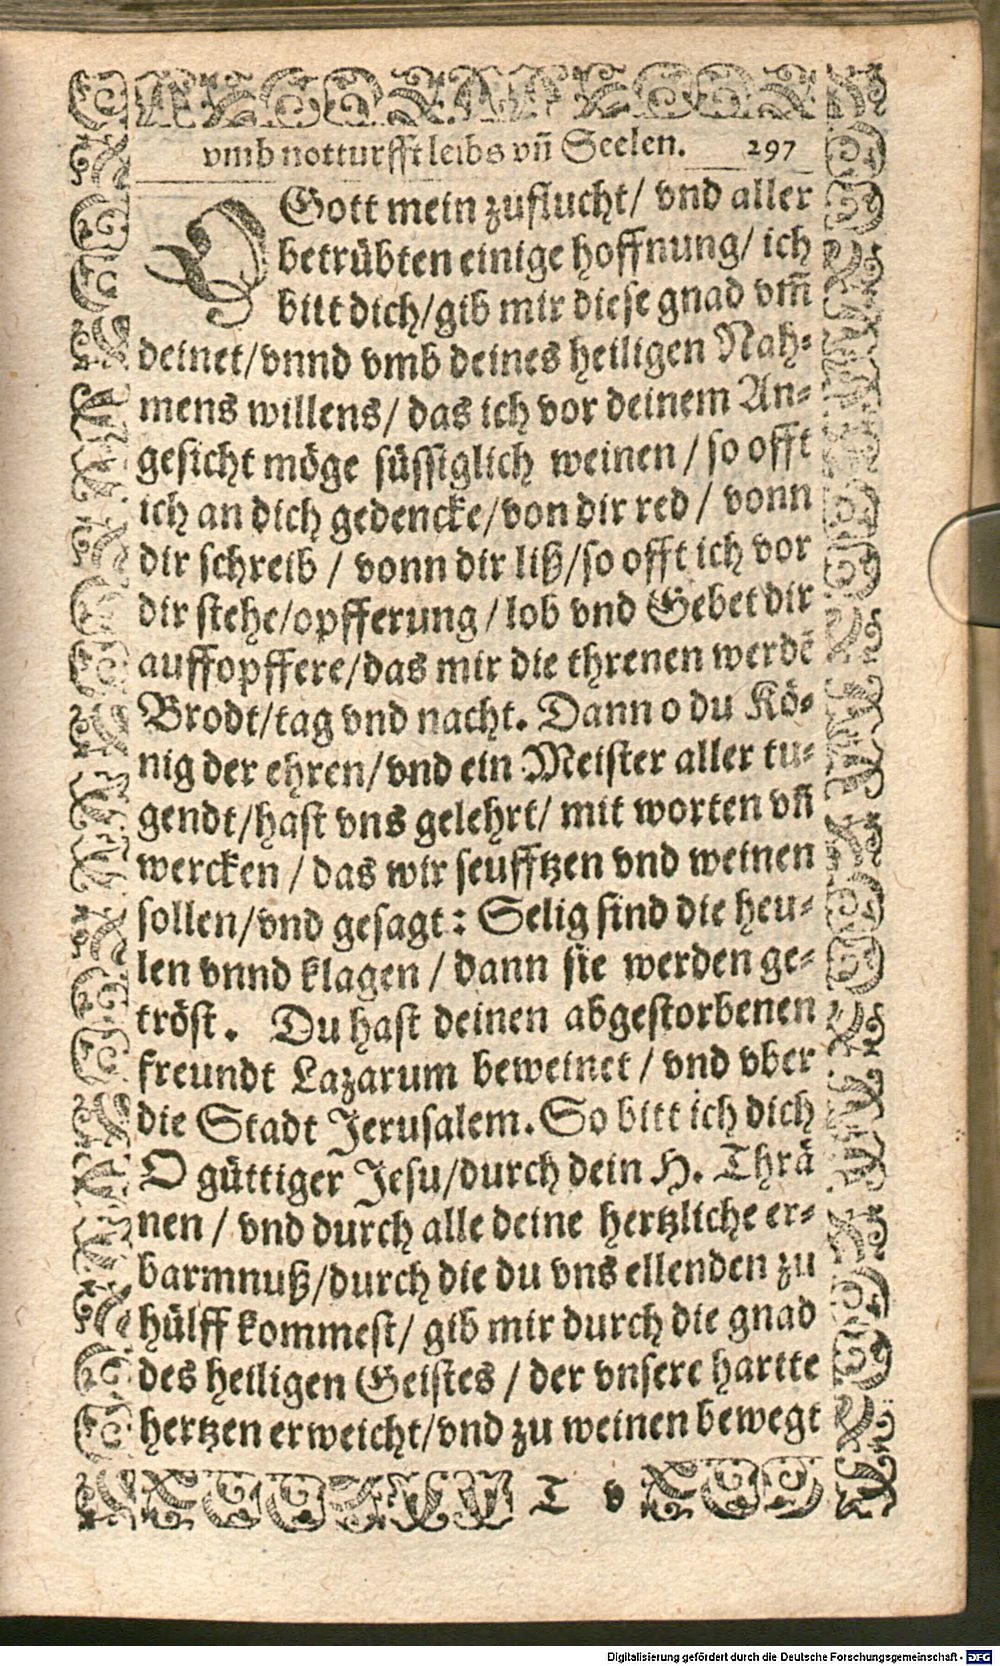 vmb notturfft leibs vn̄ Seelen. 297
O Gott mein zuflucht/ vnd aller
betrübten einige hoffnung/ ich
bitt dich/gib mir diese gnad vm̄
deinet/vnnd vmb deines heiligen Nah⸗
mens willens/ das ich vor deinem An⸗
gesicht möge süssiglich weinen / so offt
ich an dich gedencke/von dir red / vonn
dir schreib / vonn dir liß/so offt ich vor
dir stehe/opfferung / lob vnd Gebet dir
auffopffere/das mir die threnen werdē
Brodt/tag vnd nacht. Dann o du Kö⸗
nig der ehren/vnd ein Meister aller tu⸗
gendt/hast vns gelehrt/ mit worten vn̄
wercken / das wir seufftzen vnd weinen
sollen/vnd gesagt: Selig sind die heu⸗
len vnnd klagen / dann sie werden ge⸗
tröst. Du hast deinen abgestorbenen
freundt Lazarum beweinet / vnd vber
die Stadt Jerusalem. So bitt ich dich
O güttiger Jesu/durch dein H. Thrä
nen / vnd durch alle deine hertzliche er⸗
barmnuß/durch die du vns ellenden zu
hülff kommest/ gib mir durch die gnad
des heiligen Geistes / der vnsere hartte
hertzen erweicht/vnd zu weinen bewegt
T v
Digitalisierung gefördert durch die Deutsche Forschungsgemeinschaft - DFG